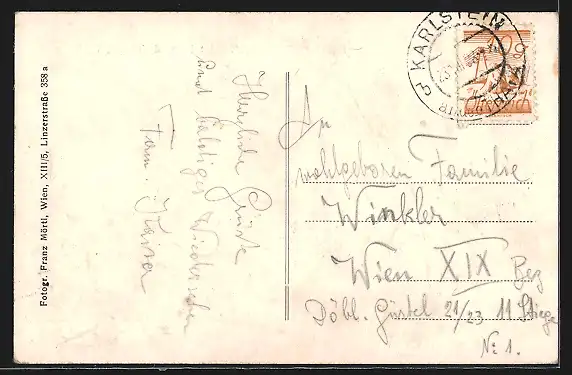 Fotogr. Franz Mörtl, Wien, XIII/5, Linzerstraße 358 a
Herzliche Grüße
und baldiges Wiedersehn
Fam. Kaiser
KARLSTEIN
An
wohlgeboren Familie
Winkler
Wien XIX Bez
Döbl. Gürtel 21/23 11 Stiege
N: 1.